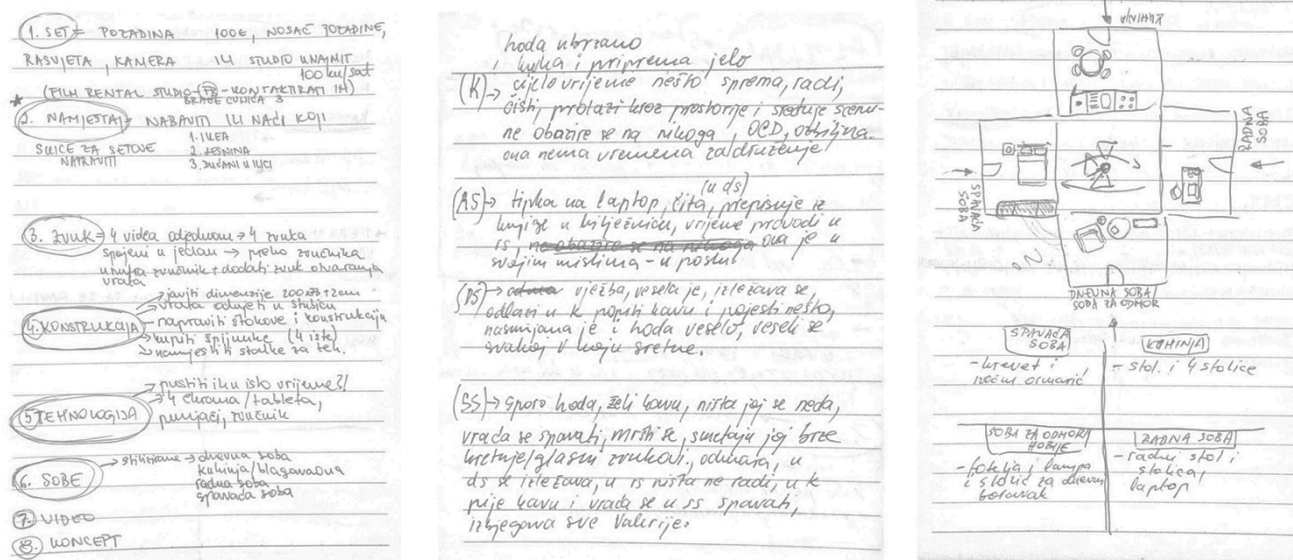 1. SET = POZADINA 100€, NOSAČ POZADINE,
RASVJETA, KAMERA ILI STUDIO UNAJMIT
100 kn/sat
(FILM RENTAL STUDIO - KONTAKTIRATI IH)
BRAĆE CVIJIĆA 3
2. NAMJEŠTAJ = NABAVITI ILI NAĆI KOJI
SLIČE ZA SETOVE
NAPRAVITI
1. IKEA
2. LESNINA
3. DUĆANI U ILICI
3. ZVUK = 4 videa odjednom → 4 zvuka
spojeni u jedan → preko zvučnika
unutra zvučnik + dodati zvuk otvaranja
vrata
4. KONSTRUKCIJA
→ javiti dimenzije 200x83+2cm
→ vrata odnijeti u Stubicu
→ napraviti štokove i konstrukciju
→ kupiti špijunke (4 iste)
→ namjestiti stalke za teh.
5. TEHNOLOGIJA
→ pustiti ih u isto vrijeme?!
→ 4 ekrana/tableta,
punjači, zvučnik
6. SOBE → stilizirane → dnevna soba
kuhinja/blagavaona
radna soba
spavaća soba
7. VIDEO
8. KONCEPT
hoda ubrzano
kuha i priprema jelo
(K) → cijelo vrijeme nešto sprema, radi,
čisti, prolazi kroz prostorije i sređuje scenu-
ne obazire se na nikoga, OCD, ozbiljna.
ona nema vremena za druženje
(u ds)
(RS) → tipka na laptop, čita, prepisuje iz
knjige u bilježnicu, vrijeme provodi u
rs, ne obazire se na nikoga ona je u
svojim mislima - u poslu
(DS) → vježba, vesela je, izležava se,
odlazi u k popiti kavu i pojesti nešto,
nasmijana je i hoda veselo, veseli se
svakoj v koju sretne.
(SS) → sporo hoda, želi kavu, ništa joj se neda,
vraća se spavati, mršti se, smetaju joj brze
kretnje/glasni zvukovi, odmara, u
ds se izležava, u rs ništa ne radi, u k
pije kavu i vraća se u ss spavati,
izbjegava sve Valerije.
KUHINJA
RADNA SOBA
SPAVAĆA SOBA
DNEVNA SOBA/
SOBA ZA ODMOR
SPAVAĆA
SOBA
- krevet i
noćni ormarić
KUHINJA
- stol i 4 stolice
SOBA ZA ODMOR/
HOBIJE
- fotelja i lampa
i stolić za dnevni
boravak
RADNA SOBA
- radni stol i
stolica,
laptop